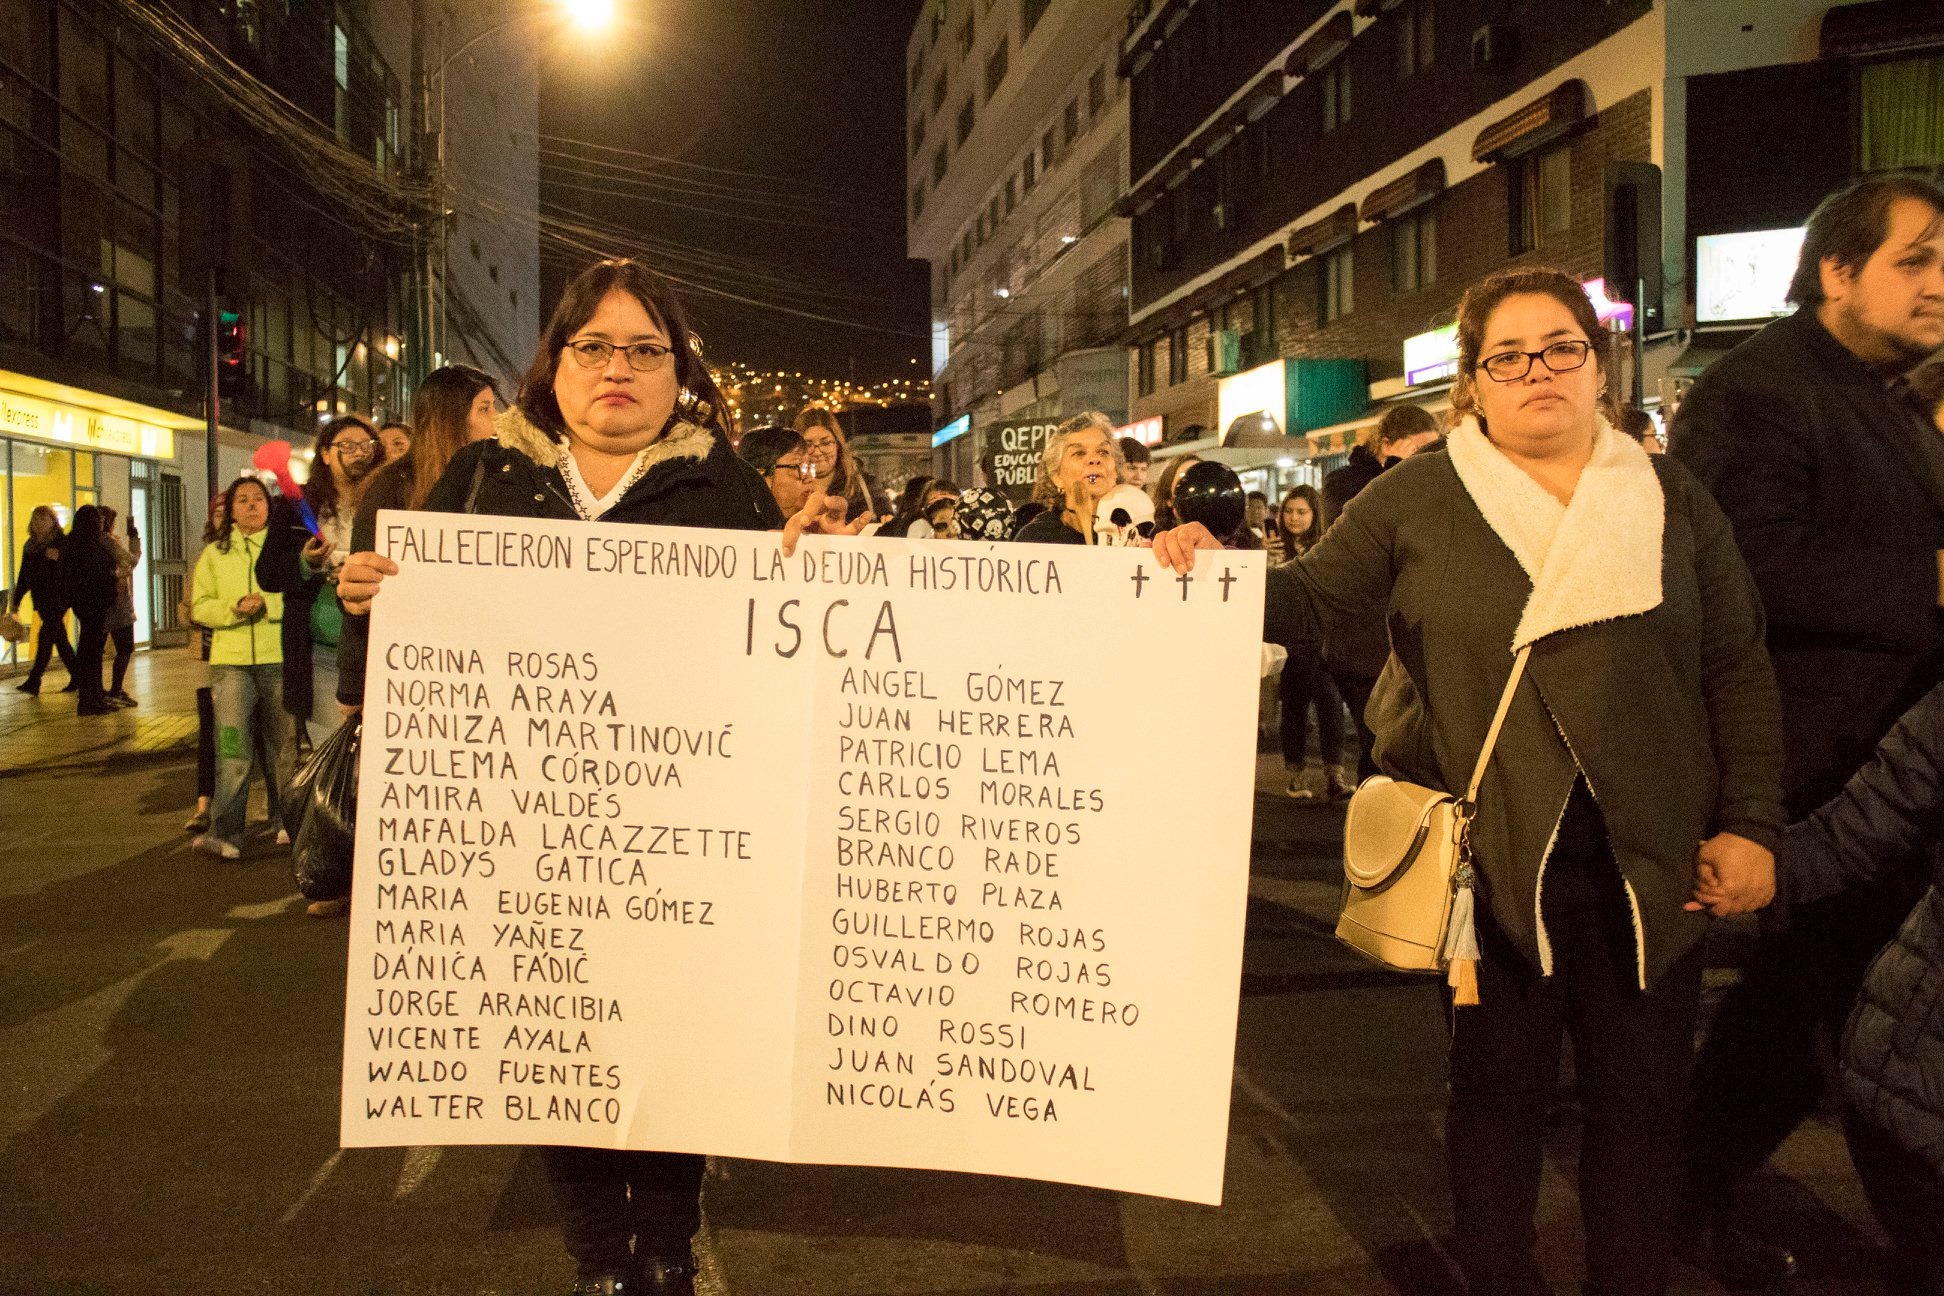 FALLECIERON ESPERANDO LA DEUDA HISTÓRICA
ISCA
CORINA ROSAS
NORMA ARAYA
DÁNIZA MARTINOVIĆ
ZULEMA CÓRDOVA
AMIRA VALDÉS
MAFALDA LACAZZETTE
GLADYS GATICA
MARIA EUGENIA GÓMEZ
MARIA YAÑEZ
DÁNIĆA FÁDIĆ
JORGE ARANCIBIA
VICENTE AYALA
WALDO FUENTES
WALTER BLANCO
ANGEL GÓMEZ
JUAN HERRERA
PATRICIO LEMA
CARLOS MORALES
SERGIO RIVEROS
BRANCO RADE
HUBERTO PLAZA
GUILLERMO ROJAS
OSVALDO ROJAS
OCTAVIO ROMERO
DINO ROSSI
JUAN SANDOVAL
NICOLÁS VEGA
QEPD